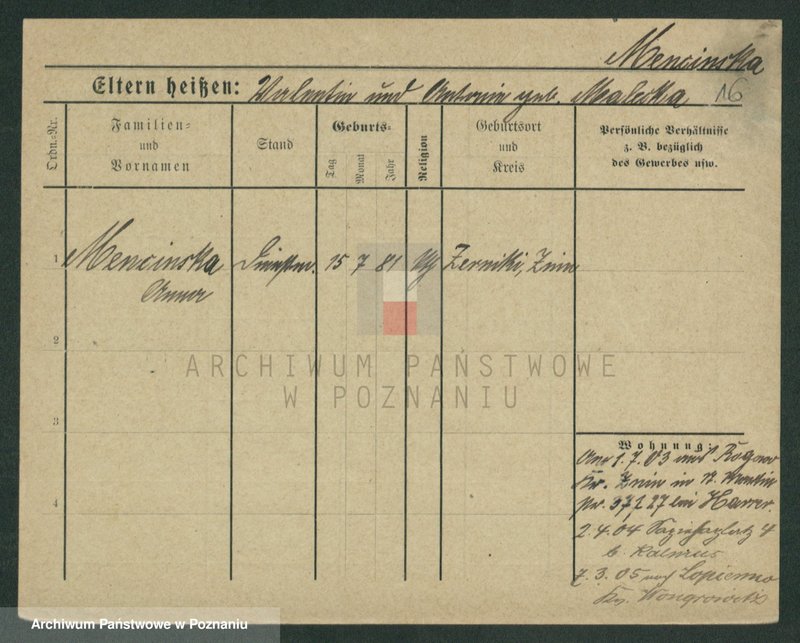 Mencinska
Eltern heißen: Valentin und Antonie geb. Maleska 16
Ordn.-Nr.
Familien-
und
Vornamen
Stand
Geburts-
Tag
Monat
Jahr
Religion
Geburtsort
und
Kreis
Persönliche Verhältnisse
z. B. bezüglich
des Gewerbes usw.
1 Mencinska Dienstm. 15 7 81 Zerniki, Znin
Anna
2
3
4
Wohnung:
1.7.03 Rogowo
Kr. Znin in
pr. 37, 227 bei Harrer
2.4.04 4
b.
7.3.05 nach Lopienno
Krs. Wongrowitz
ARCHIWUM PAŃSTWOWE
W POZNANIU
Archiwum Państwowe w Poznaniu